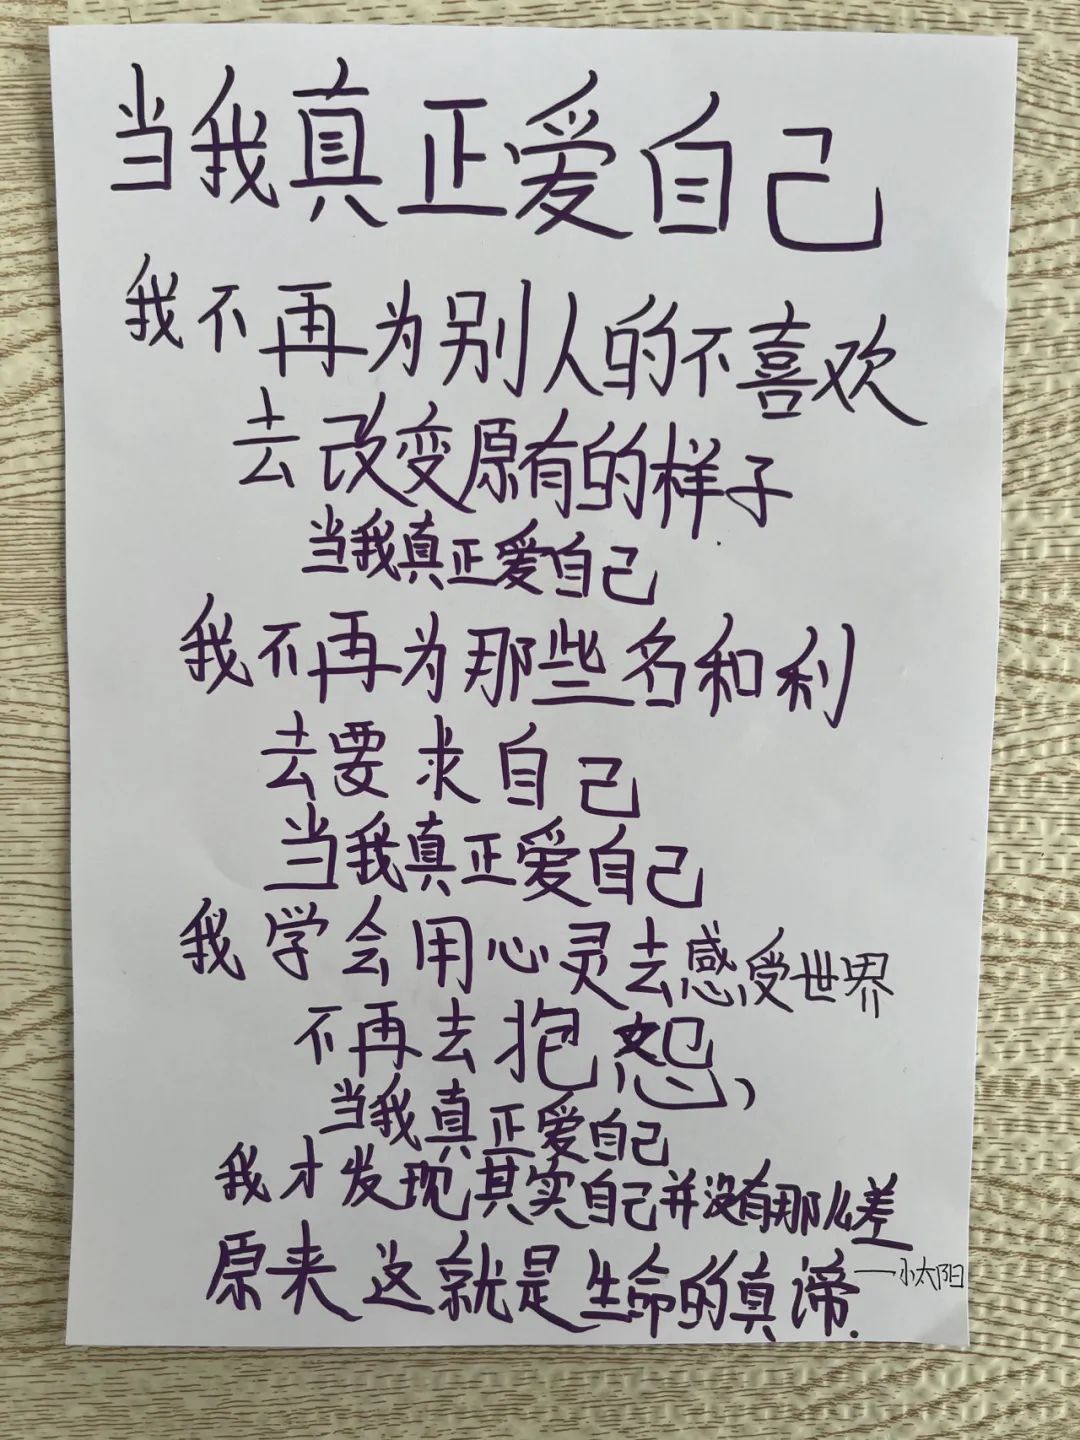 当我真正爱自己
我不再为别人的不喜欢
去改变原有的样子
当我真正爱自己
我不再为那些名和利
去要求自己
当我真正爱自己
我学会用心灵去感受世界
不再去抱怨，
当我真正爱自己
我才发现其实自己并没有那么差
原来这就是生命的真谛.
—小太阳